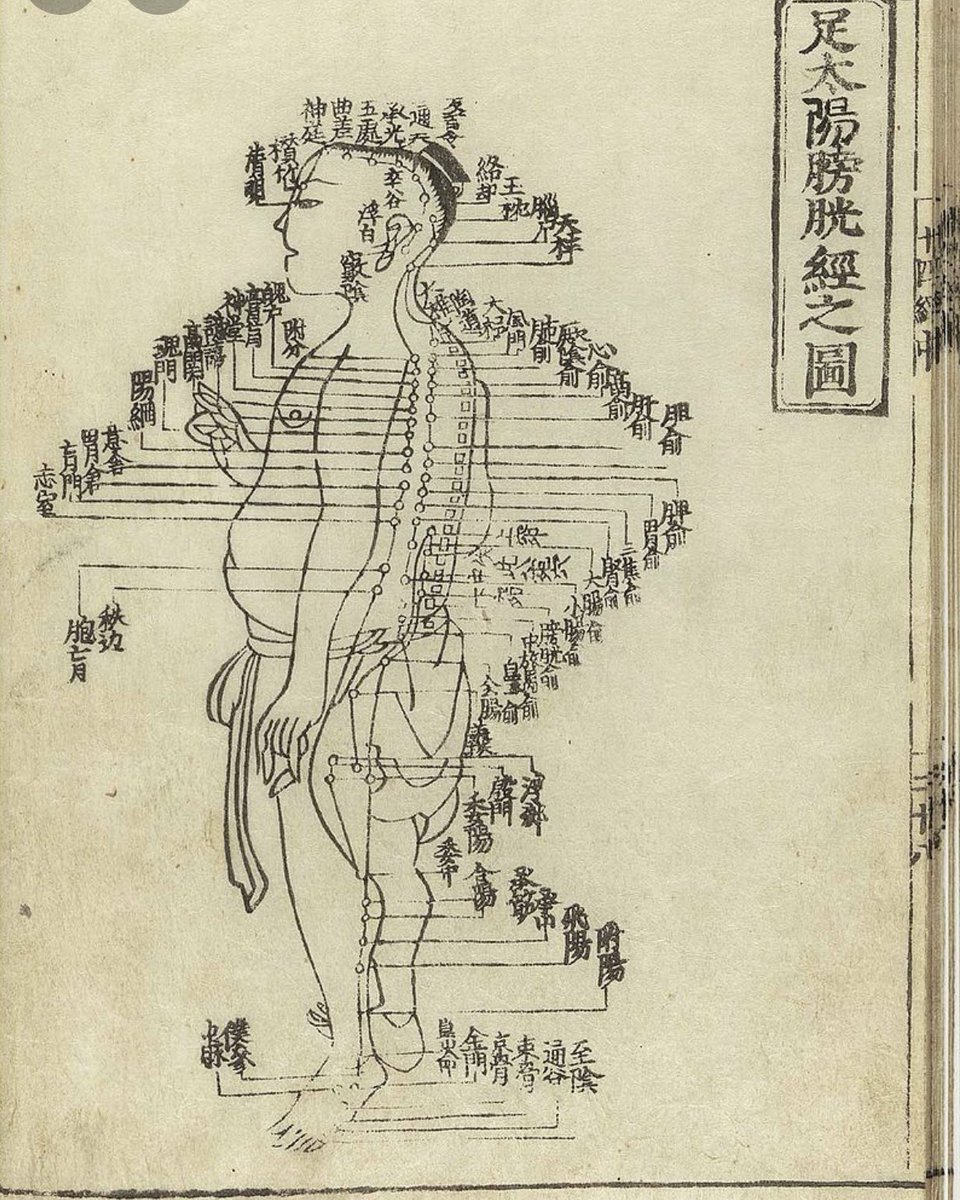 足太陽膀胱經之圖
神庭
曲差
五處
承光
通天
絡却
玉枕
腦戶
天柱
攅竹
睛明
率谷
浮白
竅陰
大椎
陶道
大杼
風門
肺俞
厥陰俞
心俞
膈俞
肝俞
膽俞
脾俞
胃俞
三焦俞
腎俞
大腸俞
小腸俞
膀胱俞
附分
魄戶
膏肓
神堂
譩譆
膈關
魂門
陽綱
意舍
胃舍
肓門
志室
胞肓
秩边
殷門
浮郄
委陽
委中
合陽
承筋
飛陽
附陽
僕參
金門
京骨
束骨
通谷
至陰